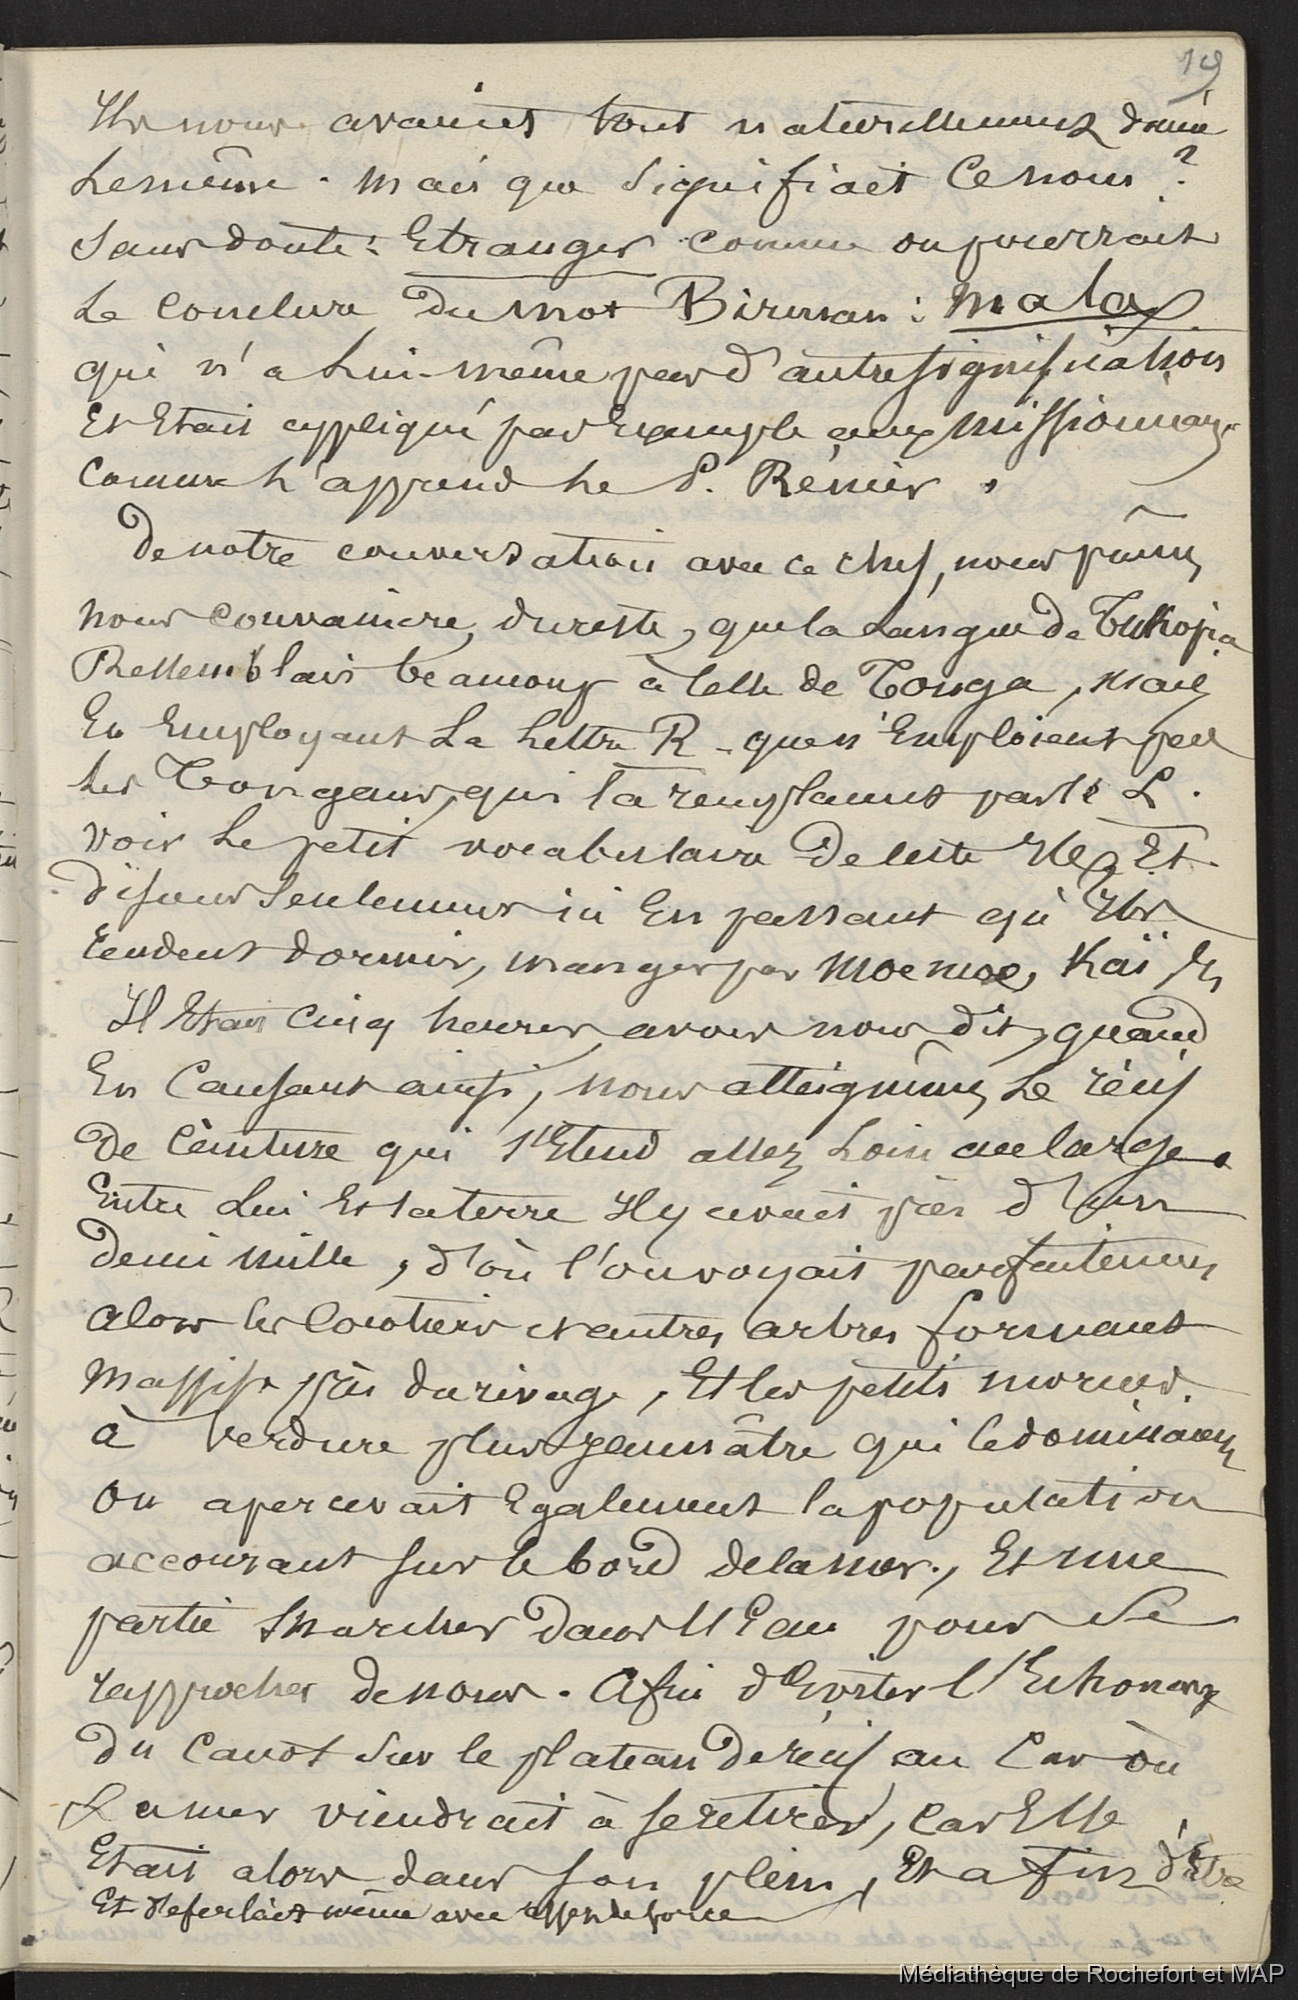 19
Ils nous avaient tout naturellement donné
le même. Mais que signifiait ce nom ?
Sans doute : Etranger comme on pourrait
Le conclure du mot Birman : mala
qui n'a lui-même pas d'autre signification
Et Etait appliqué par Exemple aux missionnaires
Comme l'apprend le P.
De notre conversation avec ce chef, nous pûmes
nous convaincre, dureste, que la Langue de Tukopia
Ressemblait beaucoup à celle de Tonga, mais
En Employant La Lettre R - que n'Emploient pas
les Tongans, qui la remplacent par le L.
voir Le petit vocabulaire de cette Ile Et
disons Seulement ici En passant qu'Ils
rendent dormir, manger par Moemoe, Kaï
Il Etait Cinq heures avons nous dit, quand
En Causant ainsi, nous atteignîmes Le récif
De Ceinture qui s'Etend assez Loin au large.
Entre Lui Et la terre Il y avait près d'un
demi mille, d'où l'on voyait parfaitement
alors les Cocotiers et autres arbres formant
Massifs près du rivage, Et les petits mornes
à Verdure plus jaunâtre qui le dominaient
On apercevait Egalement la population
accourant sur le bord de la mer, Et une
partie marcher dans l'Eau pour Se
rapprocher de nous. Afin d'Eviter l'Echouage
du Canot Sur le plateau de récif au Cas où
La mer viendrait à se retirer, Car Elle
Etait alors dans son plein, Et afin d'être
Et déferlait même avec assez de force
Médiathèque de Rochefort et MAP